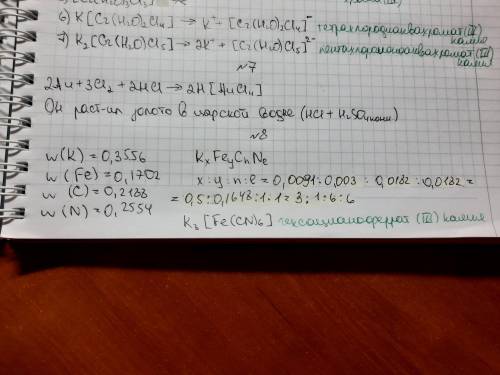 6) K[Cr(H₂O)₂Cl₄] → K⁺ + [Cr(H₂O)₂Cl₄]⁻ тетрахлородиаквахромат (III) калия
7) K₂[Cr(H₂O)Cl₅] → 2K⁺ + [Cr(H₂O)Cl₅]²⁻ пентахлоромоноаквахромат (III) калия
№7
2Au + 3Cl₂ + 2HCl → 2H[AuCl₄]
Он раст-ил золото в царской водке (HCl + H₂SO₄ конц)
№8
w(K) = 0,3556 KₓFeᵧCₙNₑ
w(Fe) = 0,1702 x : y : n : e = 0,0091 : 0,003 : 0,0182 : 0,0182 =
w(C) = 0,2188 = 0,5 : 0,1648 : 1 : 1 = 3 : 1 : 6 : 6
w(N) = 0,2554
K₃[Fe(CN)₆] гексацианоферрат (III) калия